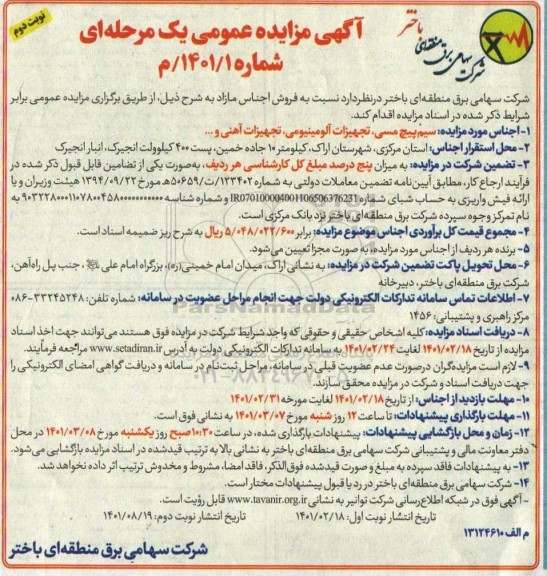 نوبت دوم
آگهی مزایده عمومی یک مرحله‌ای
شماره ۱۴۰۱/۱/م
باختر
شرکت سهامی برق منطقه‌ای
شرکت سهامی برق منطقه‌ای باختر درنظردارد نسبت به فروش اجناس مازاد به شرح ذیل، از طریق برگزاری مزایده عمومی برابر
شرایط ذکر شده در اسناد مزایده اقدام کند.
۱- اجناس مورد مزایده: سیم‌پیچ مسی، تجهیزات آلومینیومی، تجهیزات آهنی و ...
۲- محل استقرار اجناس: استان مرکزی، شهرستان اراک، کیلومتر ۱۰ جاده خمین، پست ۴۰۰ کیلوولت انجیرک، انبار انجیرک
۳- تضمین شرکت در مزایده: به میزان پنج درصد مبلغ کل کارشناسی هر ردیف، به‌صورت یکی از تضامین قابل قبول ذکر شده در
فرآیند ارجاع کار، مطابق آیین‌نامه تضمین معاملات دولتی به شماره ۱۲۳۴۰۲/ت۵۰۶۵۹هـ مورخ ۱۳۹۴/۰۹/۲۲ هیئت وزیران و یا
ارائه فیش واریزی به حساب شبای شماره IR070100004001106506376231 و شناسه به
نام تمرکز وجوه سپرده شرکت برق منطقه‌ای باختر نزد بانک مرکزی است.
۴- مجموع قیمت کل برآوردی اجناس موضوع مزایده: برابر ۵/۰۴۸/۰۲۲/۶۰۰ ریال به شرح ریز ضمیمه اسناد است.
۵- برنده هر ردیف از اجناس مورد مزایده به صورت مجزا تعیین می‌شود.
۶- محل تحویل پاکت تضمین شرکت در مزایده: به نشانی اراک، میدان امام خمینی(ره)، بزرگراه امام علی ، جنب پل راه‌آهن،
شرکت برق منطقه‌ای باختر، دبیرخانه
۷- اطلاعات تماس سامانه تدارکات الکترونیکی دولت جهت انجام مراحل عضویت در سامانه: شماره تلفن: ۳۳۲۴۵۲۴۸-۰۸۶
مرکز راهبری و پشتیبانی: ۱۴۵۶
۸- دریافت اسناد مزایده: کلیه اشخاص حقیقی و حقوقی که واجد شرایط شرکت در مزایده فوق هستند می‌توانند جهت اخذ اسناد
مزایده از تاریخ ۱۴۰۱/۰۲/۱۸ لغایت ۱۴۰۱/۰۲/۲۴ به سامانه تدارکات الکترونیکی دولت به آدرس www.setadiran.ir مراجعه فرمایند.
۹- لازم است مزایده‌گران درصورت عدم عضویت قبلی در سامانه، مراحل ثبت‌نام در سامانه و دریافت گواهی امضای الکترونیکی را
جهت دریافت اسناد و شرکت در مزایده محقق سازند.
۱۰- مهلت بازدید از اجناس: از تاریخ ۱۴۰۱/۰۲/۱۸ لغایت مورخه ۱۴۰۱/۰۲/۳۱
۱۱- مهلت بارگذاری پیشنهادات: تا ساعت ۱۲ روز شنبه مورخ ۱۴۰۱/۰۳/۰۷ به نشانی فوق است.
۱۲- زمان و محل بازگشایی پیشنهادات: پیشنهادات بارگذاری شده، در ساعت ۱۰:۳۰ صبح روز یکشنبه مورخ ۱۴۰۱/۰۳/۰۸ در محل
دفتر معاونت مالی و پشتیبانی شرکت سهامی برق منطقه‌ای باختر به نشانی بالا به ترتیب قیدشده در اسناد مزایده بازگشایی می‌شود.
۱۳- به پیشنهادات فاقد سپرده به مبلغ و صورت قیدشده فوق‌الذکر، فاقد امضا، مشروط و مخدوش ترتیب اثر داده نخواهد شد.
۱۴- شرکت سهامی برق منطقه‌ای باختر در رد یا قبول پیشنهادات مختار است.
- آگهی فوق در شبکه اطلاع‌رسانی شرکت توانیر به نشانی www.tavanir.org.ir قابل رؤیت است.
تاریخ انتشار نوبت اول: ۱۴۰۱/۰۲/۱۸ تاریخ انتشار نوبت دوم: ۱۴۰۱/۰۸/۱۹
م الف ۱۳۱۲۴۶۱۰
شرکت سهامی برق منطقه‌ای باختر
ParsNamadData